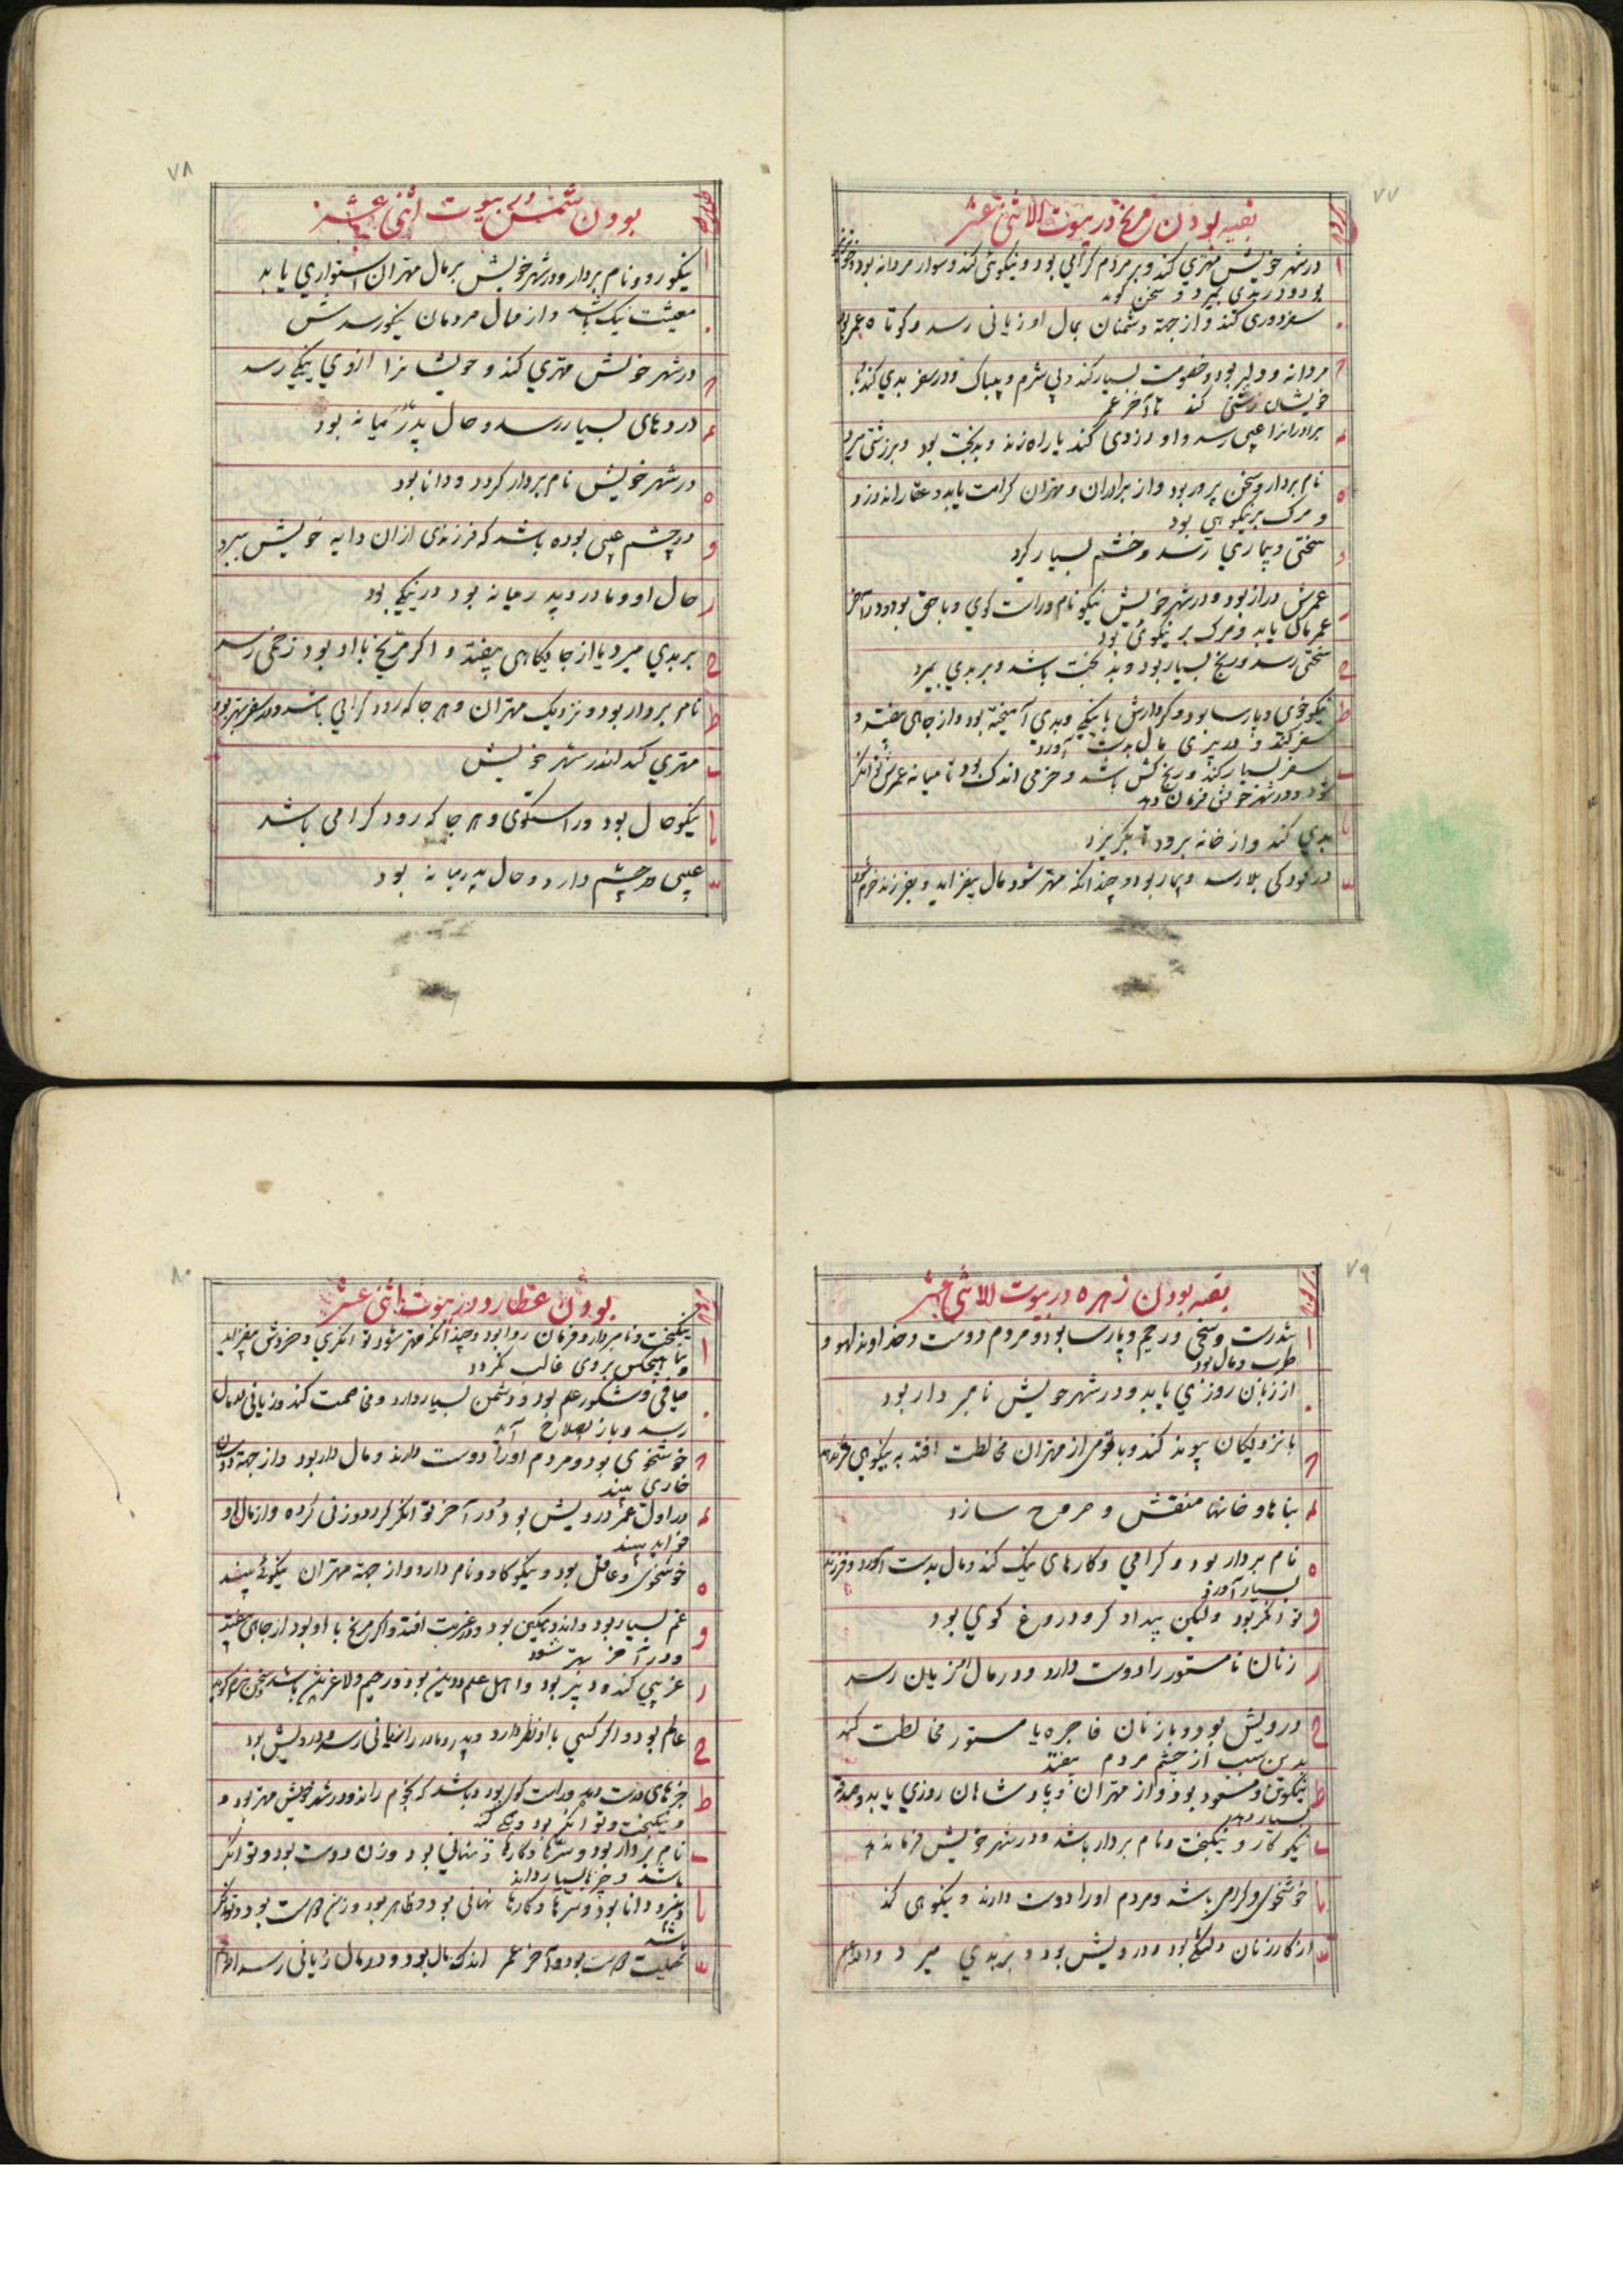 ۷۷
بقیه بودن مریخ در بیوت الاثنی عشر
ا درشهر خویش مهتری کند و بر مردم گرامی بود و نیکوئی کند و سوار مردانه بود
بود و در بدی میرد و سخن گوید
سفر دوری کند و از جهة دشمنان بمال او زیانی رسد و کوتاه عمر بود
مردانه و دلیر بود و خصومت بسیار کند و بی شرم و بیباک و در سفر بدی کند با
خویشان زشتی کند تا آخر عمر
برادرانرا عیبی رسد و او دزدی کند یا راه زند و بدبخت بود و بر زشتی میرد
ه نام بردار و سخن پرور بود و از برادران و مهتران کرامت یابد و عقار اندوزد و
و مرک بر نیکوهی بود
و سختی و بیماری رسد و خشم بسیار گیرد
عمرش دراز بود و درشهر خویش نیکو نام و راست کوی و با حق بود و در آخر
عمر مال یابد و مرک بر نیکوئی بود
ح سختی رسد و رنج بسیار بود و بد بخت باشد و بر بدی بمیرد
ط نیکو خوی و پارسا بود و کردارش با نیکی و بدی آمیخته بود و از جاهی بیفتد و
سفر کند و در پیری مال بدست آورد
سفر بسیار کند و رنج کش باشد و خرمی اندک بود تا میانه عمرش توانگر
شود و درشهر خویش فرمان دهد
یا بدی کند و از خانه برود تا بگریزد
در کودکی بلا رسد و بیمار بود و چندانکه مهتر شود مال بیفزاید و بفرزند خرم شود
۷۸
بودن شمس در بیوت اثنی عشر
ا نیکو رو و نام بردار و درشهر خویش بر مال مهتران استواری یابد
معیشت نیک باشد و از مال مردمان نیکو رسدش
درشهر خویش مهتری کند و خویشانرا ازوی نیکی رسد
دردهای بسیار رسد و حال پدر میانه بود
ه درشهر خویش نام بردار کردد و دانا بود
و در چشم عیبی بوده باشد که فرزندی از ان دایه خویش ببرد
حال او و مادر و پدر میانه بود در نیکی بود
ح بر بدی میرد یا از جایکاهی بیفتد و اکر مریخ با او بود زخمی رسد
ط نام بردار بود و نزدیک مهتران و هر جا که رود گرامی باشد و در سفر بهتر بود
مهتری کند اندر شهر خویش
یا نیکو حال بود و راستکوی و هر جا که رود کرامی باشد
عیبی در چشم دارد و حال پدر میانه بود
۷۹
بقیه بودن زهره در بیوت الاثنی عشر
ا تندرست و سخی و رحیم و پارسا بود و مردم دوست و خداوند لهو و
طرب و مال بود
از زنان روزی یابد و درشهر خویش نامبردار بود
با نزدیکان پیوند کند و با قومی از مهتران مخالطت افتد به نیکوهی
بناها و خانها منقش و مروح سازد
ه نام بردار بود و کرامی و کارهای نیک کند و مال بدست آورد و فرزند
بسیار آورد
و توانکر بود ولیکن بیدادگر و دروغ کوی بود
زنان نامستور را دوست دارد و در مال زیان رسد
ح درویش بود و با زنان فاجره یا مستور مخالطت کند
بدین سبب از چشم مردم بیفتد
ط نیکوتن و مسعود بود و از مهتران و پادشاهان روزی یابد و صدقه
بسیار دهد
نیکو کار و نیکبخت و نام بردار باشد و درشهر خویش فرمان دهد
یا خوشخوی و گرامی باشد و مردم اورا دوست دارند و نیکوهی کند
از کار زنان دلتنگ بود و درویش بود و بر بدی میرد
۸۰
بودن عطارد در بیوت اثنی عشر
ا نیکبخت و نامبردار و فرمان روا بود و چندانکه مهتر شود توانگری و خروش بیفزاید
و با هیچکس بروی غالب نکردد
صافی و شکور علم بود و دشمن بسیار دارد و مخاصمت کند و زیانی در مال
رسد و باز بصلاح آید
خوشخوی بود و مردم اورا دوست دارند و مال دار بود و از جهة دوستان
خاری بیند
در اول عمر درویش بود و در آخر توانگر گردد و زنی کرده و از مال او
فواید بیند
ه خوشخوی و عاقل بود و نیکو کار و نام دارد و از جهة مهتران نیکوئی بیند
و غم بسیار بود و اندوهگین بود و در غربت افتد و اکر مریخ با او بود از جای بیفتد
و در آخر بهتر شود
غریبی کند و دبیر بود و اهل علم و دین بود و رحیم و لاغر تن باشد
ح عالم بود و اکر کسی با او نظر دارد و پدر و مادر را زیانی رسد و درویش بود
ط چیزهای درست دهد و راست کوی بود و باشد که نجوم داند و درشهر خویش مهتر بود و
و نیکبخت و توانگر بود
نام بردار بود و سرها و کارها نهانی بود و زن دوست بود و توانگر
باشد و چیزها بسیار داند
یا و دانا بود و سرها و کارها نهانی بود و ظاهر بود و زن دوست بود و توانگر
باشد
بود و آخر عمر اندک مال بود و در مال زیانی رسد